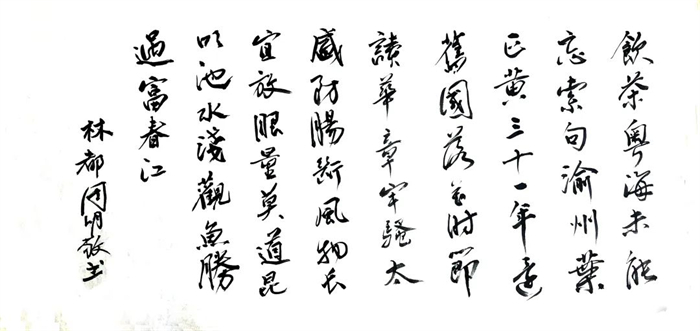 飲茶粤海未能
忘索句渝州葉
正黄三十一年還
舊國落花时節
讀華章牢騷太
盛防腸断風物长
宜放眼量莫道昆
明池水淺觀魚勝
過富春江
林都周明敬书